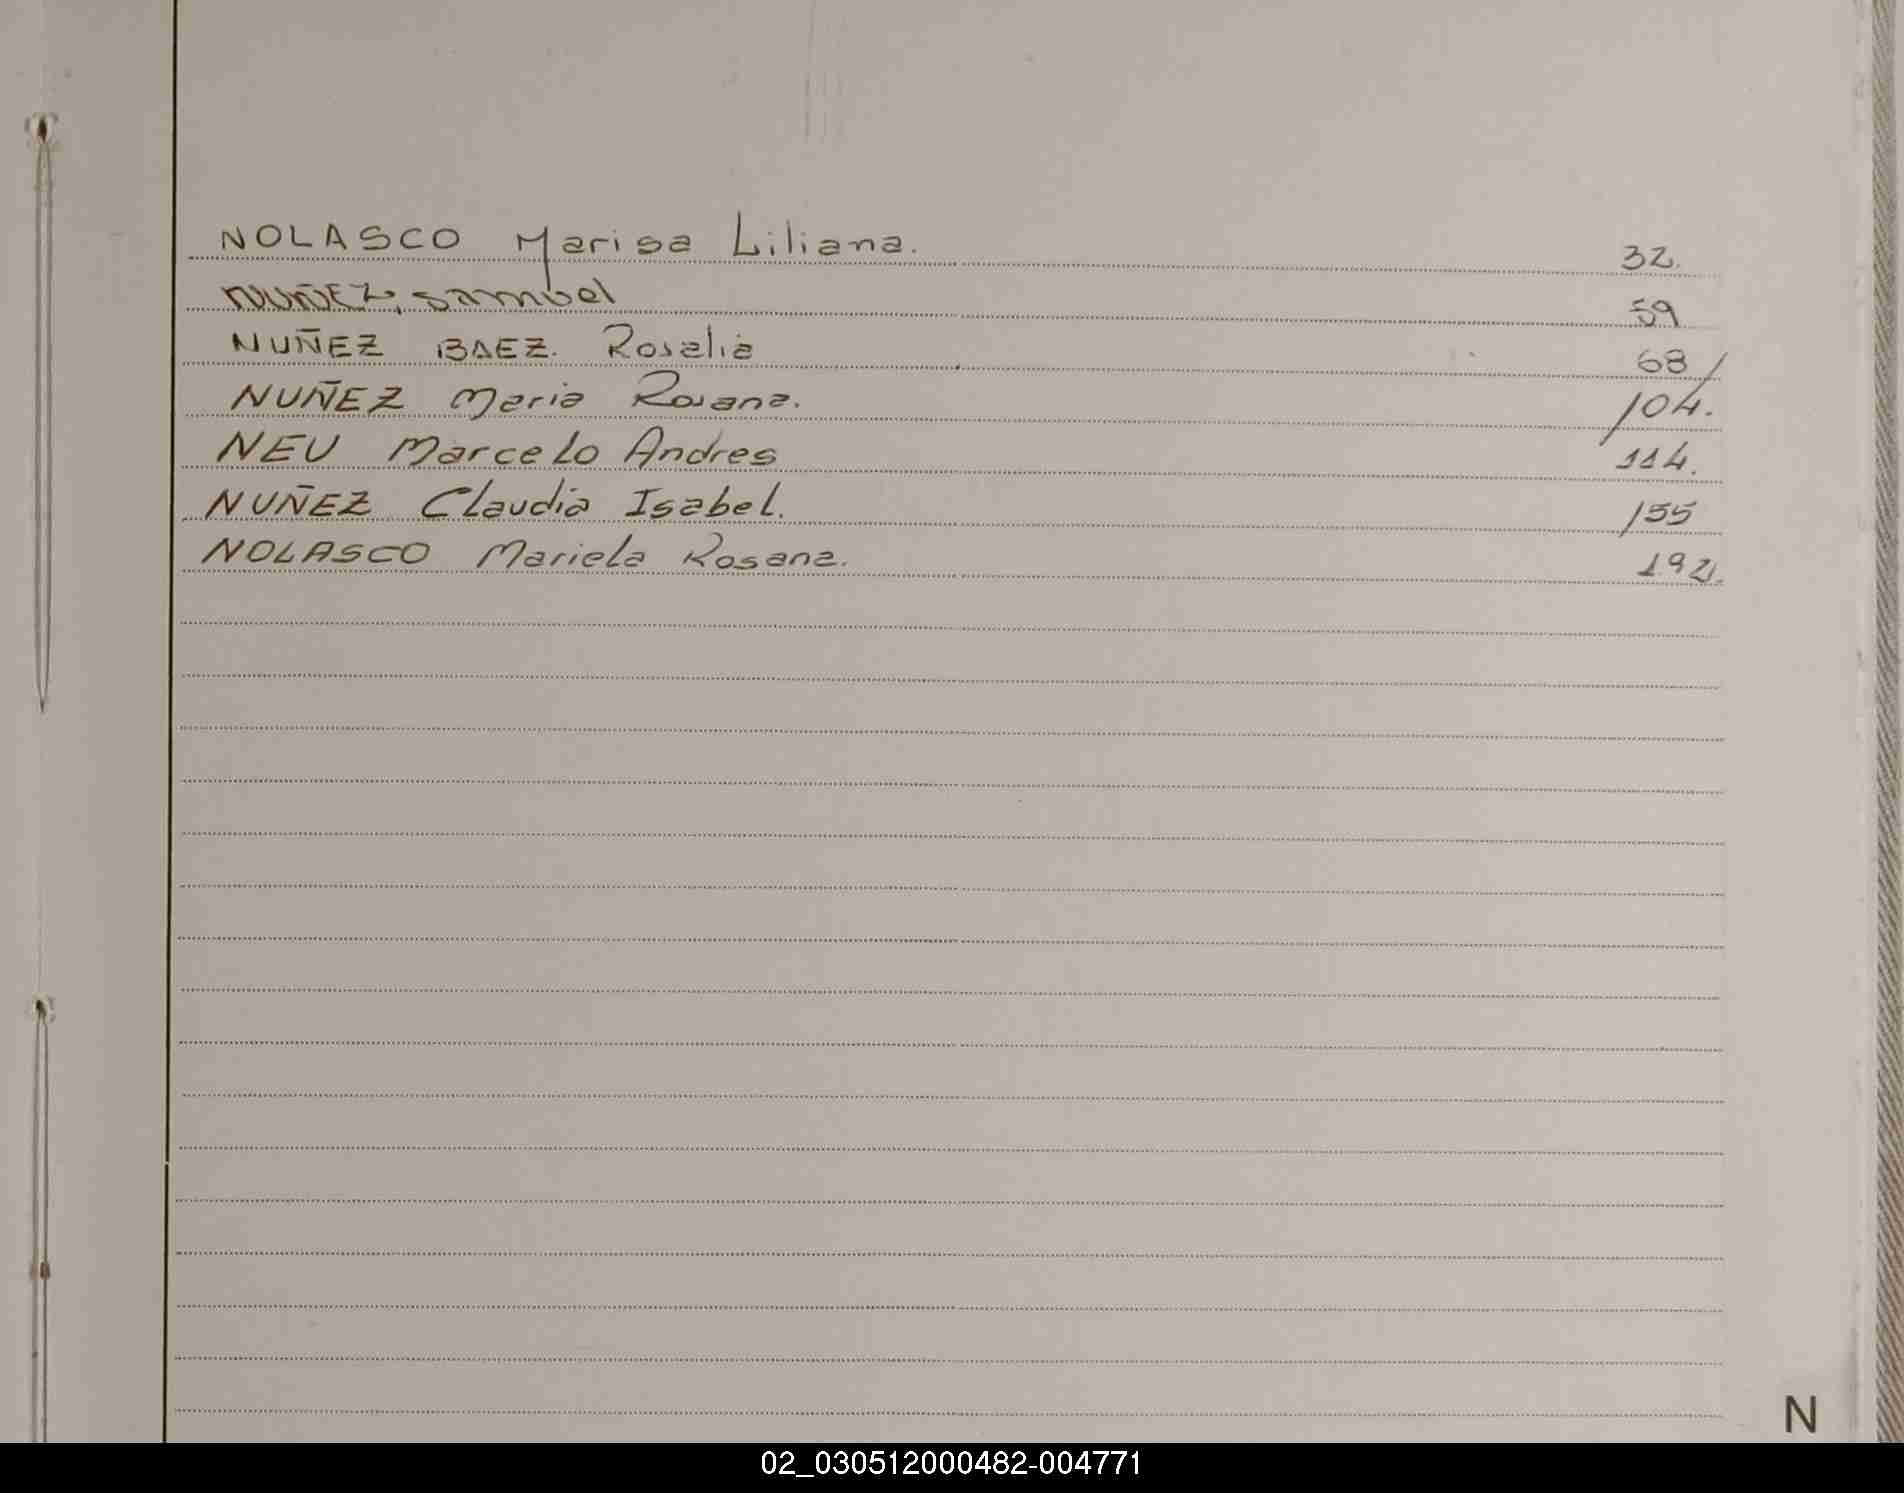 NOLASCO Marisa Liliana. 32.
NUÑEZ, Samuel 59
NUÑEZ BAEZ. Rosalia 68/
NUÑEZ Maria Rosana. 104.
NEU Marcelo Andres 114.
NUÑEZ Claudia Isabel. 155
NOLASCO Mariela Rosana. 192.
N
02_030512000482-004771